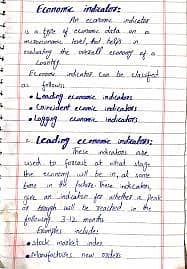 Economic indicators:
An economic indicator
is a type of economic data on a
macroeconomic level, that helps in
evaluating the overall economy of a
country.
Economic indicator can be classified
as follows:
• Leading economic indicators
• Coincident economic indicators
• Lagging economic indicators
• Leading economic indicators:
These indicators are
used to forecast at what stage
the economy will be in, at some
time in the future. These indicators
give an indication for whether a peak
or trough will be reached in the
following 3-12 months
Examples include:
• stock market index
• Manufactures new orders